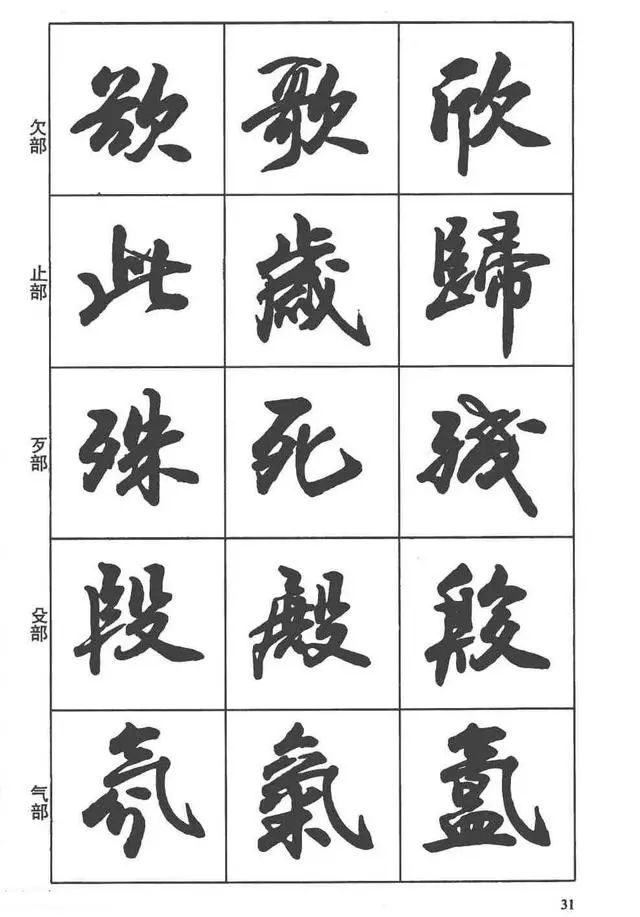 欠部 欲 歌 欣
止部 此 歲 歸
歹部 殊 死 残
殳部 段 殿
气部 氛 氣 氲
31